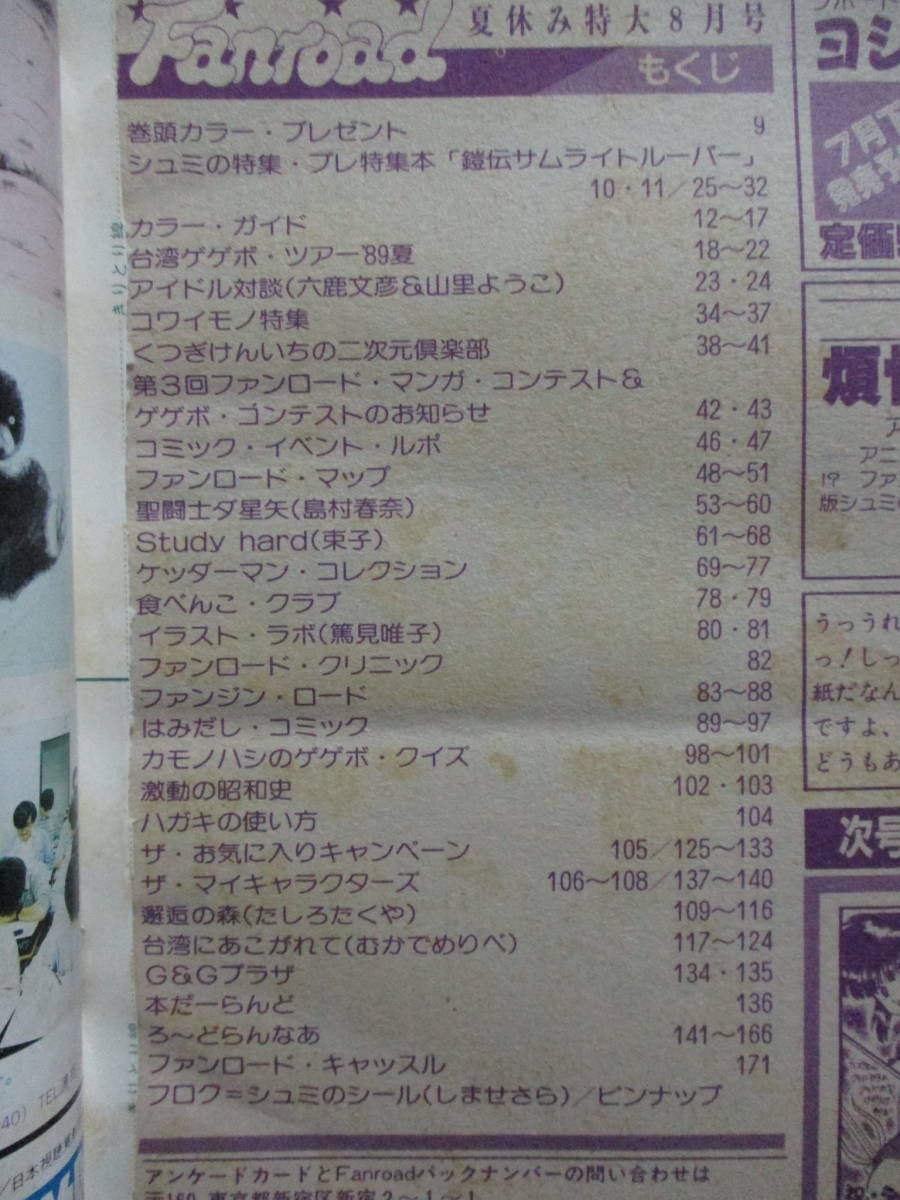 Fanroad
夏休み特大8月号
もくじ
巻頭カラー・プレゼント 9
シュミの特集・プレ特集本「鎧伝サムライトルーパー」
10・11/25〜32
カラー・ガイド 12〜17
台湾ゲゲボ・ツアー'89夏 18〜22
アイドル対談(六鹿文彦&山里ようこ) 23・24
コワイモノ特集 34〜37
くつぎけんいちの二次元倶楽部 38〜41
第3回ファンロード・マンガ・コンテスト&
ゲゲボ・ゴンテストのお知らせ 42・43
コミック・イベント・ルポ 46・47
ファンロード・マップ 48〜51
聖闘士ダ星矢(島村春奈) 53〜60
Study hard(束子) 61〜68
ケッダーマン・コレクション 69〜77
食べんこ・クラブ 78・79
イラスト・ラボ(篤見唯子) 80・81
ファンロード・クリニック 82
ファンジン・ロード 83〜88
はみだし・コミック 89〜97
カモノハシのゲゲボ・クイズ 98〜101
激動の昭和史 102・103
ハガキの使い方 104
ザ・お気に入りキャンペーン 105/125〜133
ザ・マイキャラクターズ 106〜108/137〜140
邂逅の森(たしろたくや) 109〜116
台湾にあこがれて(むかでめりべ) 117〜124
G&Gプラザ 134・135
本だーらんど 136
ろ〜どらんなあ 141〜166
ファンロード・キャッスル 171
フロク=シュミのシール(しませさら)/ピンナップ
アンケードカードとFanroadバックナンバーの問い合わせは
〒160 東京都新宿区新宿2〜1〜1
ヨシ
7月下
発売予
定価
煩悩
ア
アニ
19 ファ
版シュミの
うっうれ
っ!しっ
紙だなん
ですよ、
どうもあ
次号
40) TEL
/日本視聴